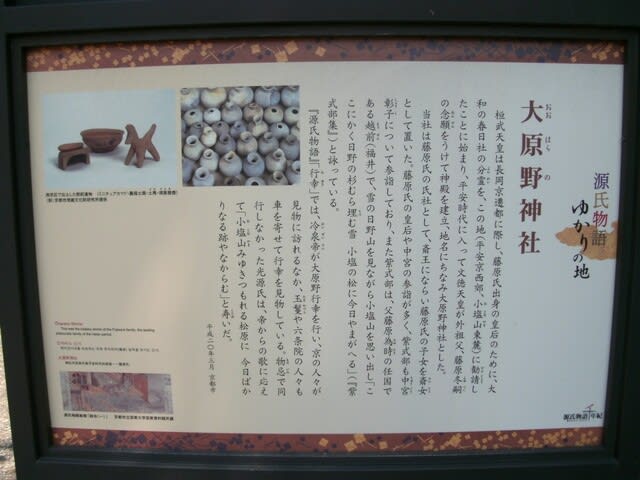 源氏物語
ゆかりの地
大原野神社
おお はら の
桓武天皇は長岡京遷都に際し、藤原氏出身の皇后のために、大
和の春日社の分霊を、この地(平安京西郊、小塩山東麓)に勧請し
たことに始まり、平安時代に入って文徳天皇が外祖父、藤原冬嗣
の念願をうけて神殿を建立、地名にちなみ大原野神社とした。
当社は藤原氏の氏社として、斎王にならい藤原氏の子女を斎女
として置いた。藤原氏の皇后や中宮の参詣が多く、紫式部も中宮
彰子について参詣しており、また紫式部は、父藤原為時の任国で
ある越前(福井)で、雪の日野山を見ながら小塩山を思い出し「こ
こにかく日野の杉むら埋む雪 小塩の松に今日やまがへる」(『紫
式部集』)と詠っている。
『源氏物語』「行幸」では、冷泉帝が大原野行幸を行い、京の人々が
見物に訪れるなか、玉鬘や六条院の人々も
車を寄せて行幸を見物している。物忌で同
行しなかった光源氏は、帝からの歌に応え
て「小塩山みゆきつもれる松原に 今日ばか
りなる跡やなからむ」と寿いだ。
平成二〇年三月 京都市
Oharano Shrine
源氏物語千年紀